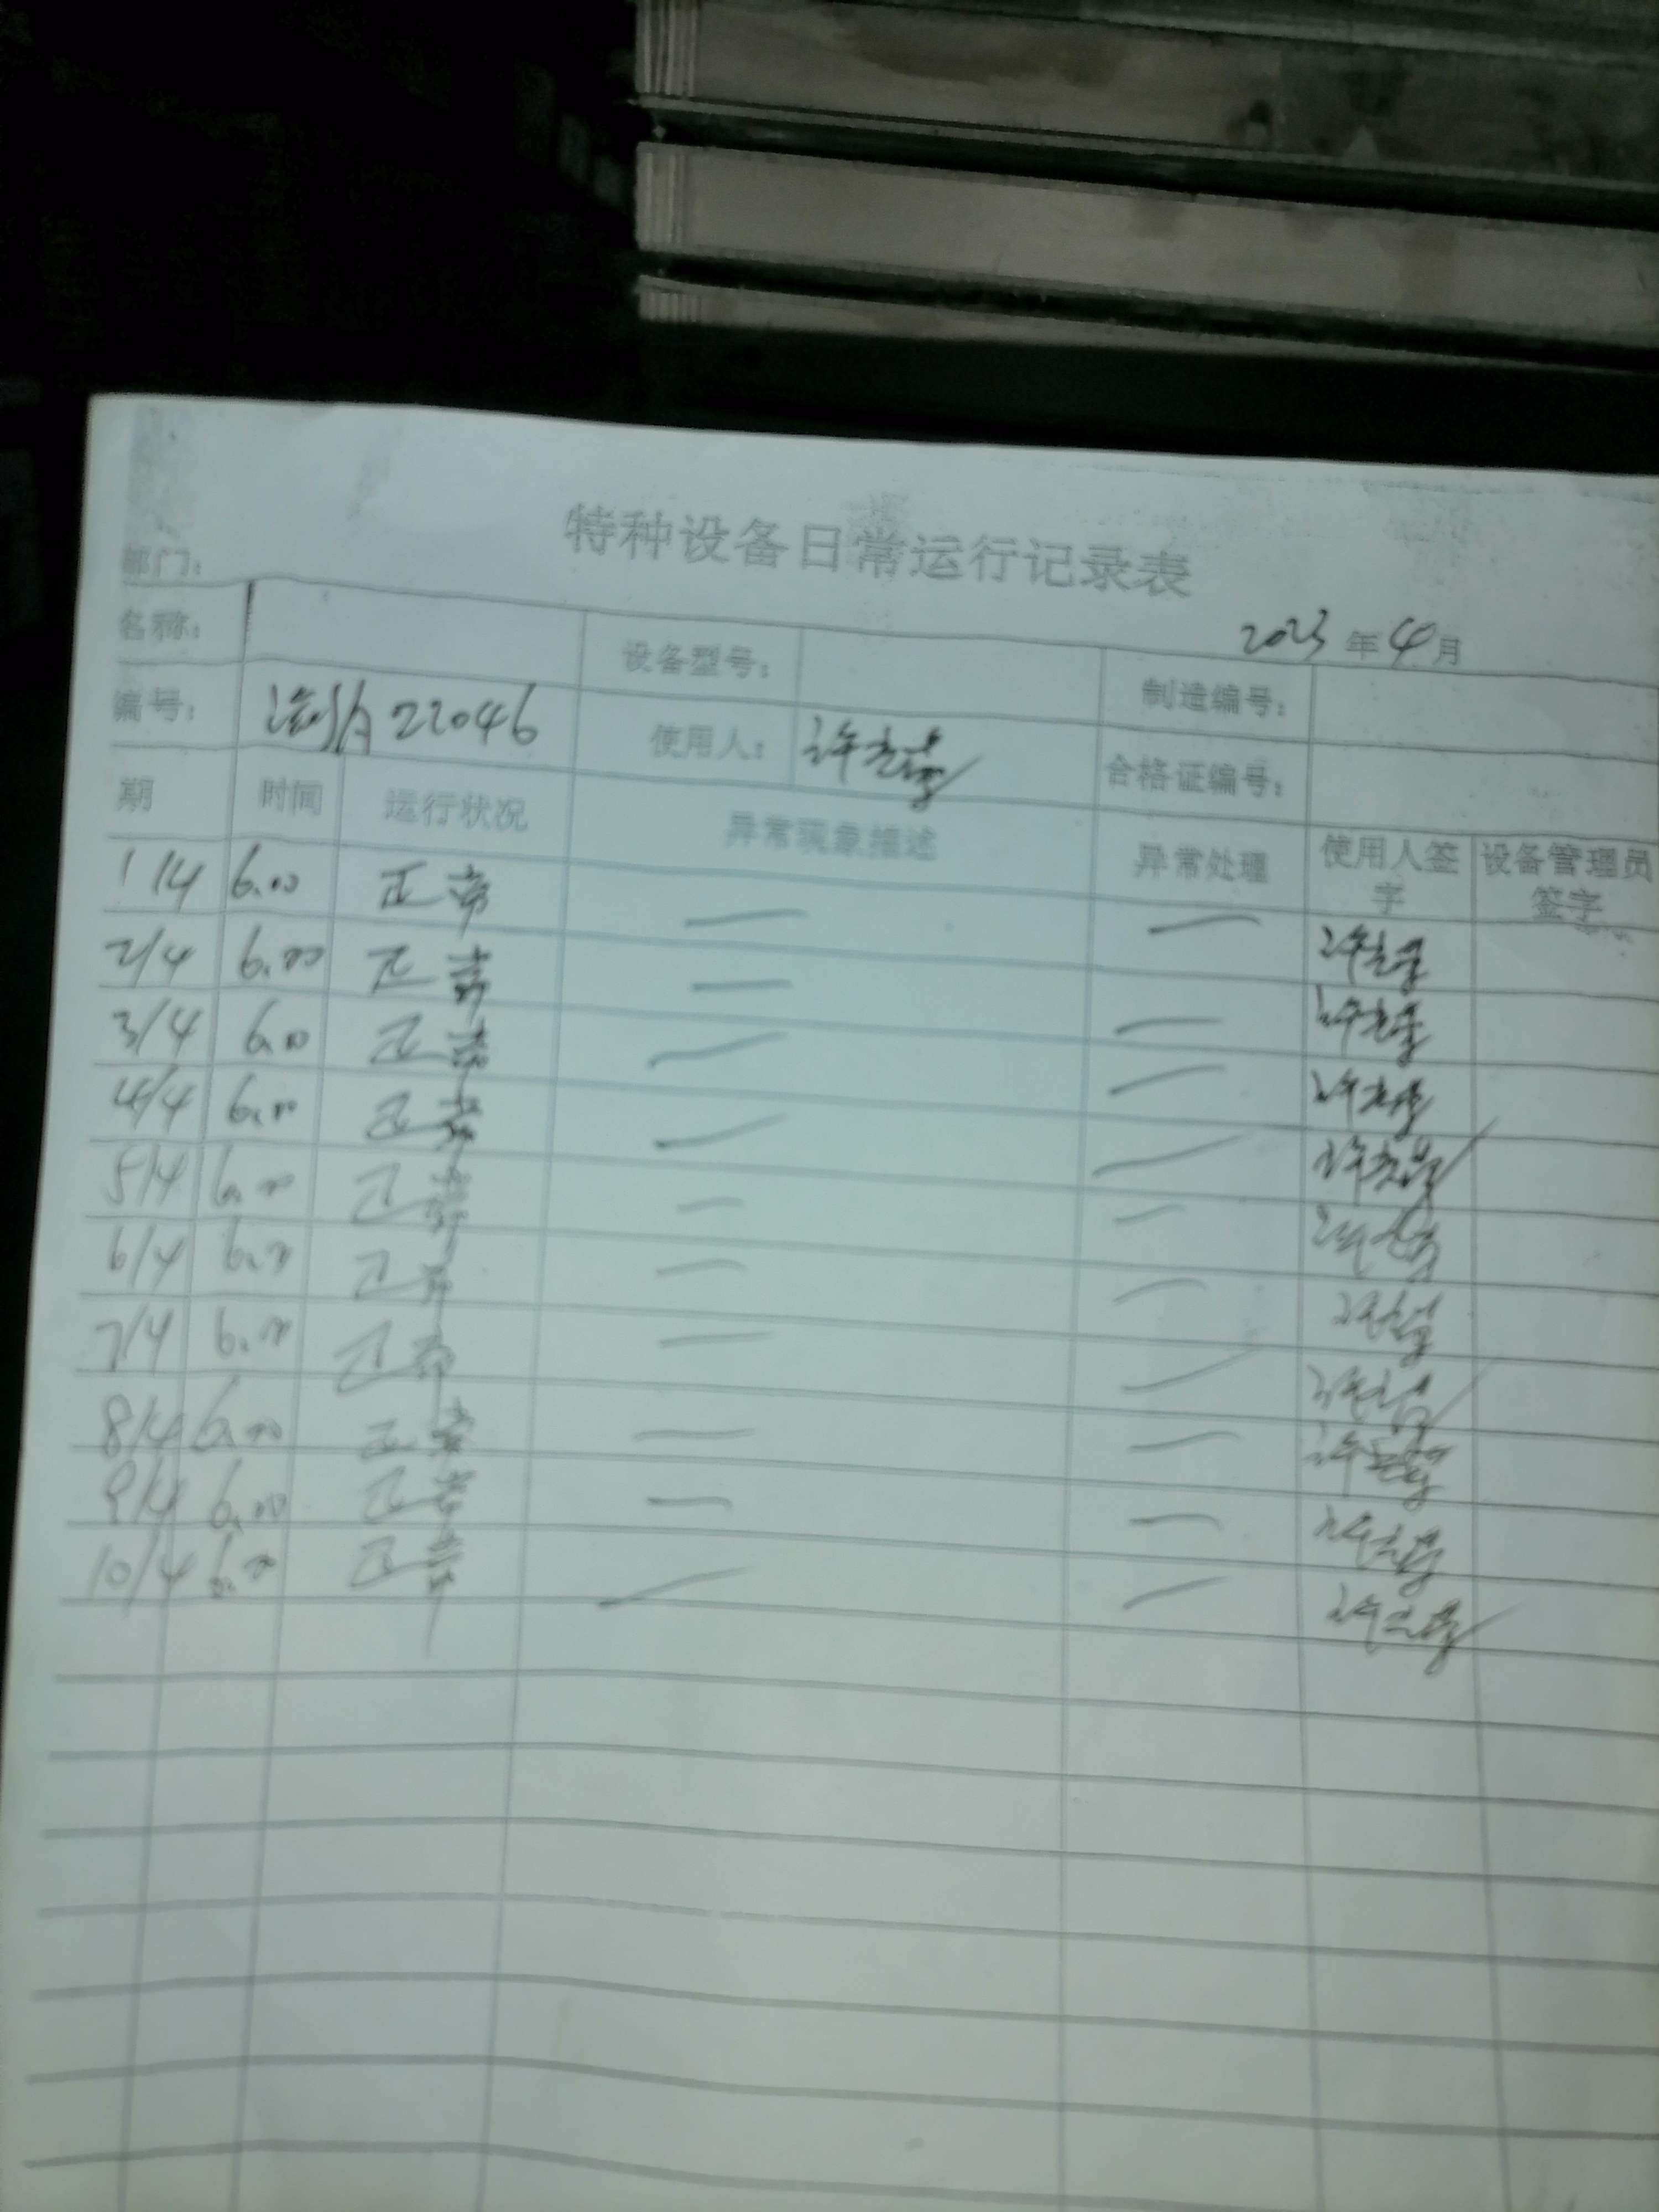 特种设备日常运行记录表
部门:
2023 年 4 月
名称: 设备型号: 制造编号:
编号: 22046 使用人: 许 合格证编号:
期 时间 运行状况 异常现象描述 异常处理 使用人签字 设备管理员签字
1/4 6.00 正常 — — 许
2/4 6.00 正常 — — 许
3/4 6.00 正常 — — 许
4/4 6.00 正常 — — 许
5/4 6.00 正常 — — 许
6/4 6.00 正常 — — 许
7/4 6.00 正常 — — 许
8/4 6.00 正常 — — 许
9/4 6.00 正常 — — 许
10/4 6.00 正常 — — 许